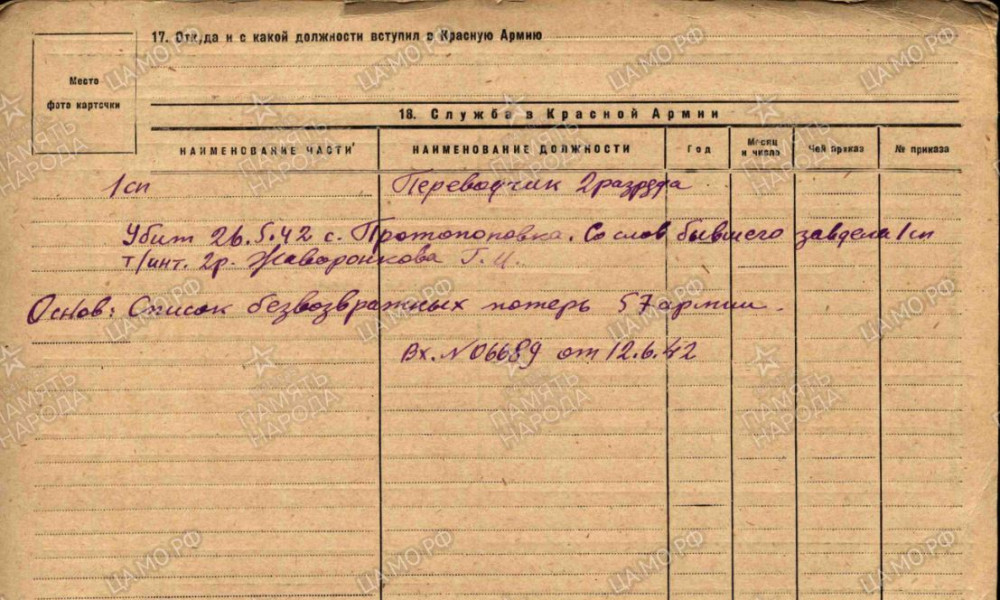 17. Откуда и с какой должности вступил в Красную Армию
Место
фото карточки
18. Служба в Красной Армии
НАИМЕНОВАНИЕ ЧАСТИ НАИМЕНОВАНИЕ ДОЛЖНОСТИ Год Месяц и число Чей приказ № приказа
1 сп Переводчик 2 разряда
Убит 26.5.42 с. Протопоповка. Со слов бывшего завдела 1 сп
т/инт. 2р. Жаворонкова Г.И.
Основ: Список безвозвражных потерь 57 армии.
Вх. № 06689 от 12.6.42
ЦАМО.РФ
ПАМЯТЬ НАРОДА